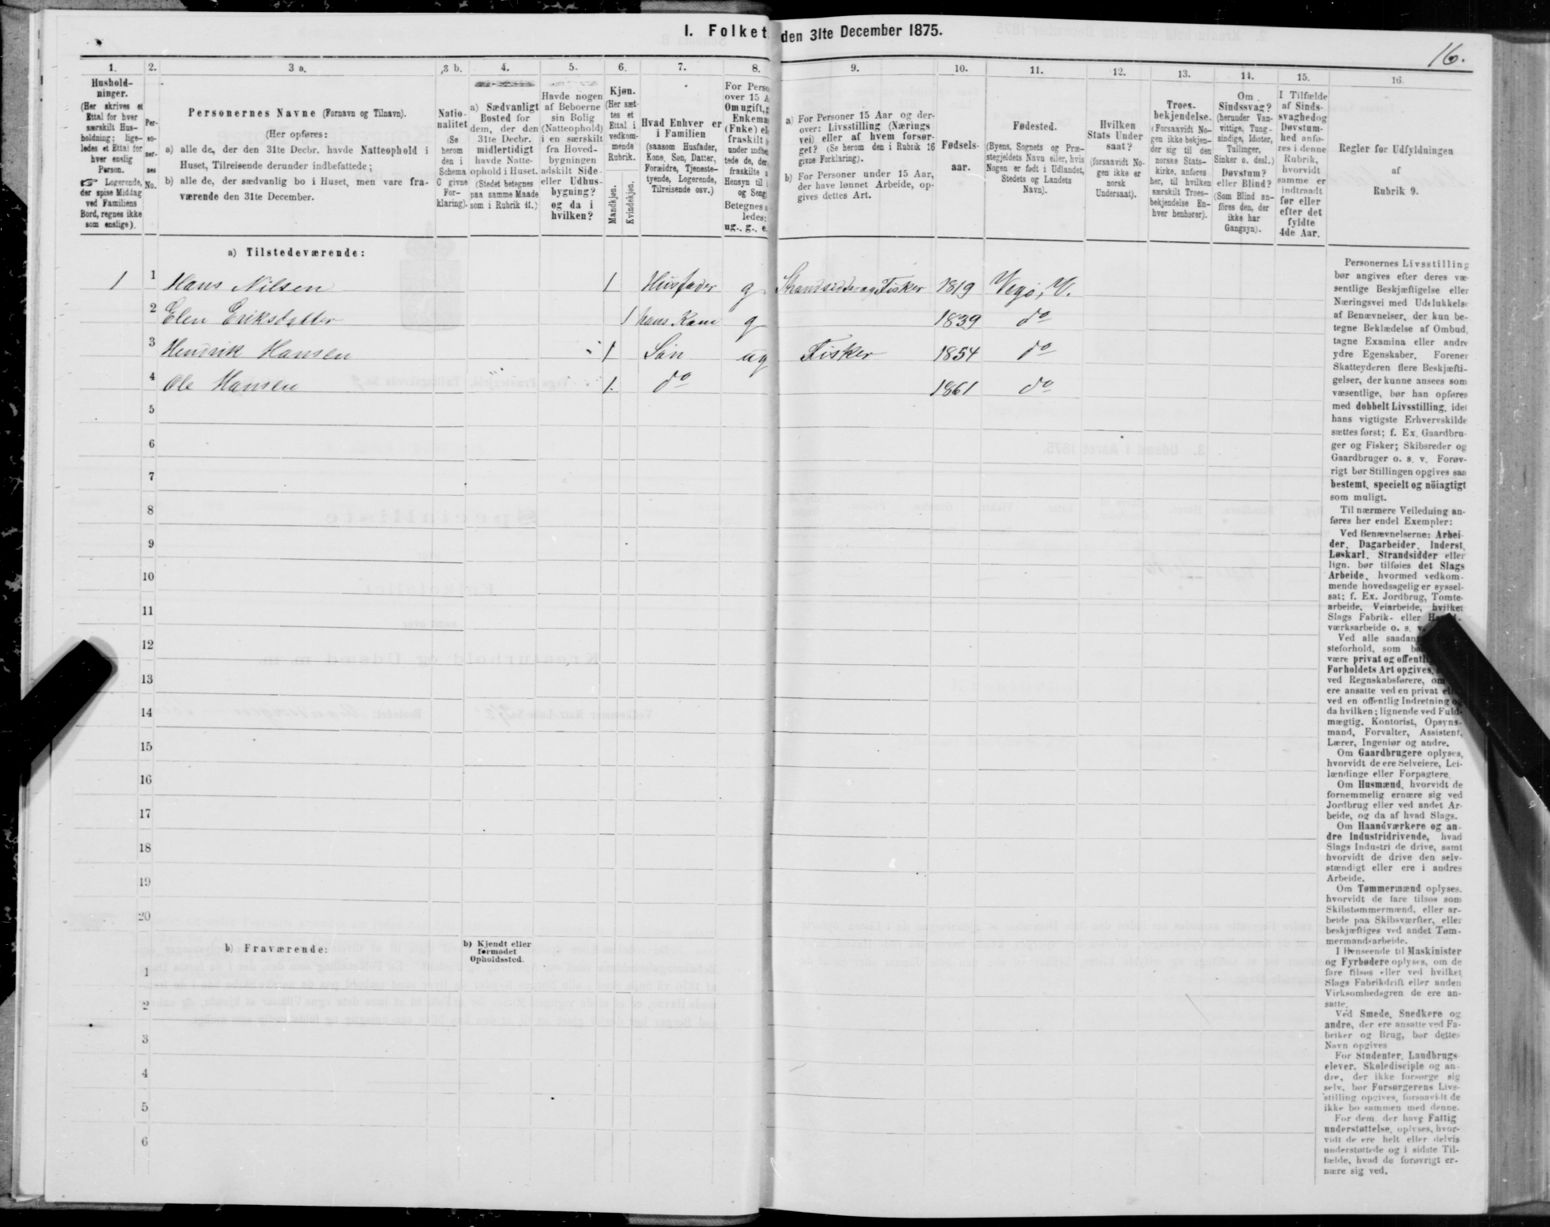 I. Folket den 31te December 1875.
16.
1.
Husholdninger.
(Her skrives et
Ettal for hver
særskilt Husholdning; ligeledes et Ettal for
hver enslig
Person.
Logerende,
der spise Middag
ved Familiens
Bord, regnes ikke
som enslige).
2.
Personernes
No.
3 a.
Personernes Navne (Fornavn og Tilnavn).
(Her opføres:
a) alle de, der den 31te Decbr. havde Natteophold i
Huset, Tilreisende derunder indbefattede;
b) alle de, der sædvanlig bo i Huset, men vare fraværende den 31te December.
3 b.
Nationalitet
(Se
herom
den i
Schema
C givne
Forklaring).
4.
a) Sædvanligt
Bosted for
dem, der den
31te Decbr.
midlertidigt
havde Natteophold i Huset.
(Stedet betegnes
paa samme Maade
som i Rubrik 11.)
5.
Havde nogen
af Beboerne
sin Bolig
(Natteophold)
i en særskilt
fra Hovedbygningen
adskilt Side-
eller Udhusbygning?
og da i
hvilken?
6.
Kjøn.
(Her sættes et
Ettal i
vedkommende
Rubrik.
Mandkjøn.
Kvindekjøn.
7.
Hvad Enhver er
i Familien
(saasom Husfader,
Kone, Søn, Datter,
Forældre, Tjenestetyende, Logerende,
Tilreisende osv.)
8.
For Perso
over 15 A
Om ugift, g
Enkema
(Enke) el
fraskilt
Betegnes
ledes:
ug., g., e.
9.
a) For Personer 15 Aar og derover: Livsstilling (Næringsvei) eller af hvem forsørget? (Se herom den i Rubrik 16
givne Forklaring).
b) For Personer under 15 Aar,
der have lønnet Arbeide, opgives dettes Art.
10.
Fødselsaar.
11.
Fødested.
(Byens, Sognets og Præstegjeldets Navn eller, hvis
Nogen er født i Udlandet,
Stedets og Landets
Navn).
12.
Hvilken
Stats Undersaat?
(forsaavidt Nogen ikke er
norsk
Undersaat).
13.
Troesbekjendelse.
(Forsaavidt Nogen ikke bekjender sig til den
norske Statskirke, anføres
her, til hvilken
særskilt Troesbekjendelse Enhver benhører).
14.
Om
Sindssvag?
(herunder Vanvittige, Tungsindige, Idioter,
Tullinger,
Sinker o. desl.)
Døvstum?
eller Blind?
(Som Blind anføres den, der
ikke har
Gangsyn).
15.
I Tilfælde
af Sindssvaghed og
Døvstumhed anføres i denne
Rubrik,
hvorvidt
samme er
indtraadt
før eller
efter det
fyldte
4de Aar.
16.
Regler for Udfyldningen
af
Rubrik 9.
a) Tilstedeværende:
1 1 Hans Nilsen 1 Husfader g Strandsidder og Fisker 1819 Vegø, V.
2 Elen Eriksdatter 1 hans Kone g 1839 do
3 Henrik Hansen 1 Søn ug Fisker 1854 do
4 Ole Hansen 1 do 1861 do
5
6
7
8
9
10
11
12
13
14
15
16
17
18
19
20
b) Fraværende:
b) Kjendt eller
formodet
Opholdssted.
1
2
3
4
5
6
Personernes Livsstilling
bør angives efter deres væsentlige Beskjæftigelse eller
Næringsvei med Udelukkelse
af Benævnelser, der kun betegne Beklædelse af Ombud,
tagne Examina eller andre
ydre Egenskaber. Forener
Skatteyderen flere Beskjæftigelser, der kunne ansees som
væsentlige, bør han opføres
med dobbelt Livsstilling, idet
hans vigtigste Erhvervskilde
sættes først; f. Ex. Gaardbruger og Fisker; Skibsreder og
Gaardbruger o. s. v. Forøvrigt bør Stillingen opgives saa
bestemt, specielt og nöiagtigt
som muligt.
Til nærmere Veiledning anføres her endel Exempler:
Ved Benævnelserne: Arbeider, Dagarbeider, Inderst,
Løskarl, Strandsidder eller
lign. bør tilføies det Slags
Arbeide, hvormed vedkommende hovedsagelig er sysselsat; f. Ex. Jordbrug, Tomtearbeide, Veiarbeide, hvilket
Slags Fabrik- eller
værksarbeide o. s. v.
Ved alle saadan
steforhold, som
være privat og offentli
Forholdets Art opgives,
ved Regnskabsførere, om
ere ansatte ved en privat eller
ved en offentlig Indretning og
da hvilken; lignende ved Fuldmægtig, Kontorist, Opsynsmand, Forvalter, Assistent,
Lærer, Ingeniør og andre.
Om Gaardbrugere oplyses,
hvorvidt de ere Selveiere, Leilændinge eller Forpagtere.
Om Husmænd, hvorvidt de
fornemmelig ernære sig ved
Jordbrug eller ved andet Arbeide, og da af hvad Slags.
Om Haandværkere og andre Industridrivende, hvad
Slags Industri de drive, samt
hvorvidt de drive den selvstændigt eller ere i andres
Arbeide.
Om Tømmermænd oplyses,
hvorvidt de fare tilsøs som
Skibstømmermænd, eller arbeide paa Skibsværfter, eller
beskjæftiges ved andet Tømmermandsarbeide.
I Henseende til Maskinister
og Fyrbødere oplyses, om de
fare tilsøs eller ved hvilket
Slags Fabrikdrift eller anden
Virksomhedsgren de ere ansatte.
Ved Smede, Snedkere og
andre, der ere ansatte ved Fabriker og Brug, bør dettes
Navn opgives
For Studenter, Landbrugselever, Skoledisciple og andre, der ikke forsørge sig
selv, bør Forsørgerens Livsstilling opgives, forsaavidt de
ikke bo sammen med denne.
For dem, der have Fattigunderstøttelse, oplyses, hvorvidt de ere helt eller delvis
understøttede og i sidste Tilfælde, hvad de forøvrigt ernære sig ved.